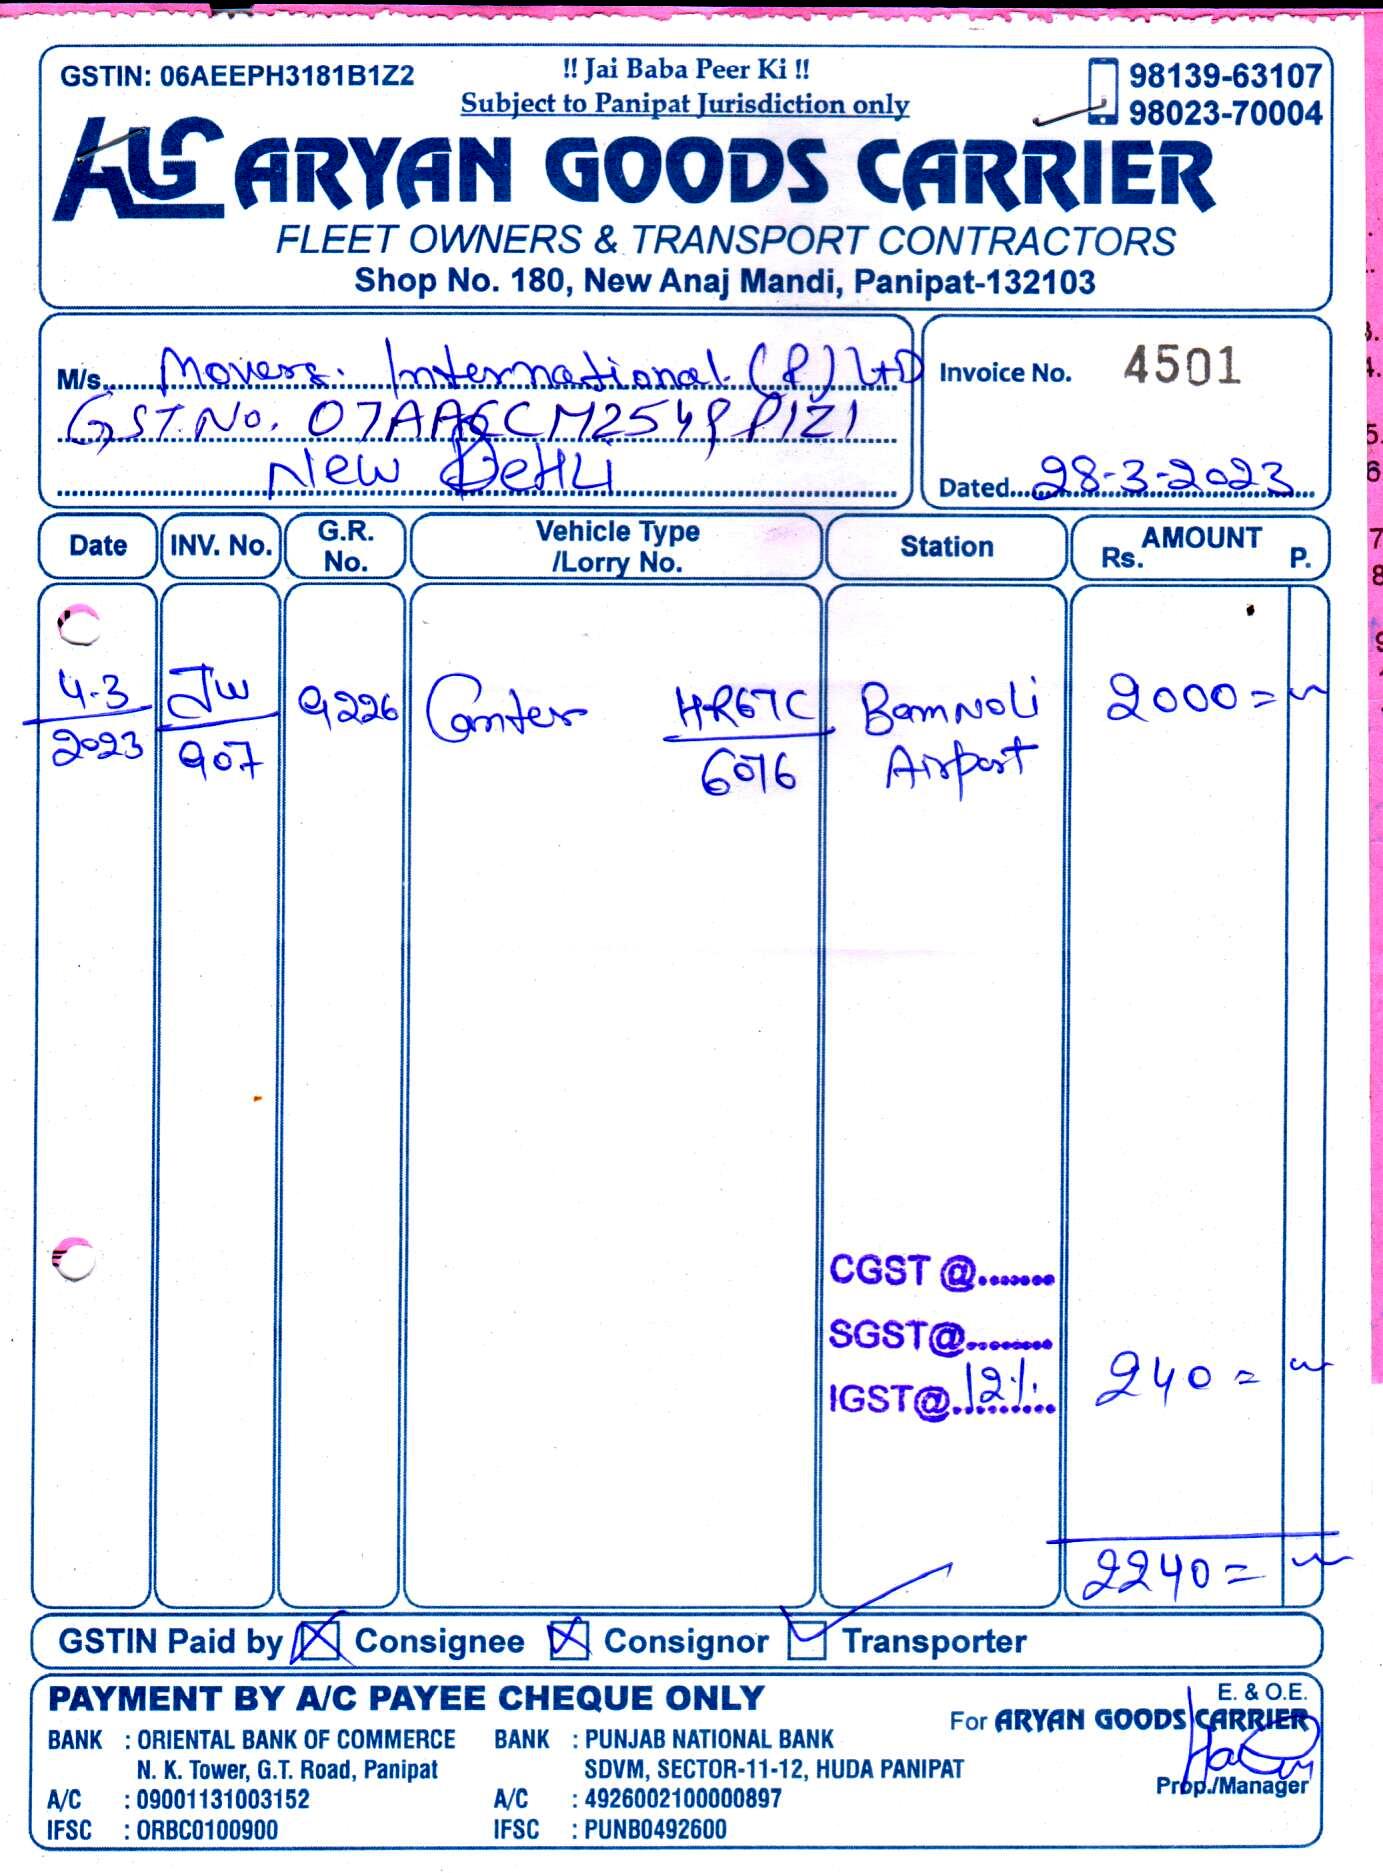 GSTIN: 06AEEPH3181B1Z2
!! Jai Baba Peer Ki !!
Subject to Panipat Jurisdiction only
98139-63107
98023-70004
AGC ARYAN GOODS CARRIER
FLEET OWNERS & TRANSPORT CONTRACTORS
Shop No. 180, New Anaj Mandi, Panipat-132103
M/s. Movers. International (P) LTD
GST.No.
New DeHLi
Invoice No. 4501
Dated 28-3-2023
Date INV. No. G.R. No. Vehicle Type /Lorry No. Station AMOUNT Rs. P.
4-3 JW 9226 Canter HR67C Bamnoli 2000=
2023 907 6076 Airport
CGST @
SGST@
IGST@ 12% 240=
2240=
GSTIN Paid by Consignee Consignor Transporter
PAYMENT BY A/C PAYEE CHEQUE ONLY
BANK : ORIENTAL BANK OF COMMERCE
N. K. Tower, G.T. Road, Panipat
A/C : 09001131003152
IFSC : ORBC0100900
BANK : PUNJAB NATIONAL BANK
SDVM, SECTOR-11-12, HUDA PANIPAT
A/C : 4926002100000897
IFSC : PUNB0492600
E. & O.E.
For ARYAN GOODS CARRIER
Prop./Manager